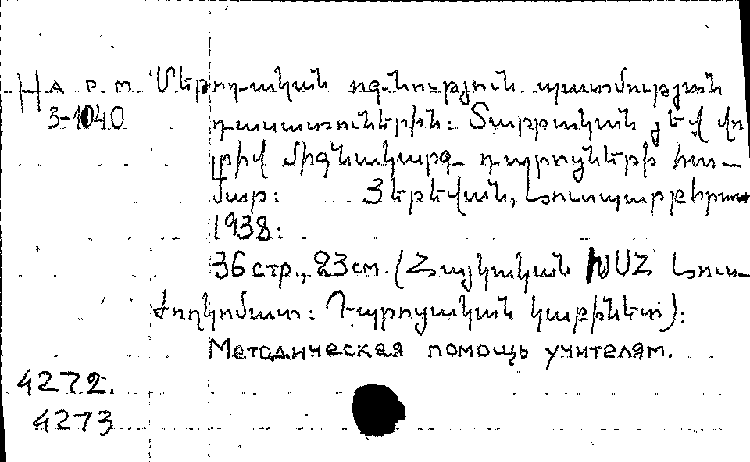 Н а р м Մեթոդական ոգնություն պատմության
3-1040 դասատուներին: Տարրական յեվ վո
լրիվ միջնակարգ դպրոցների հա-
մար: Յերեվան, Լուսպարբհրատ
1938:
36 стр., 23 см. (Հայկական ԽՍՀ Լուս-
ժողկոմատ: Դպրոցական կաբինետ):
Методическая помощь учителям.
4272.
4273